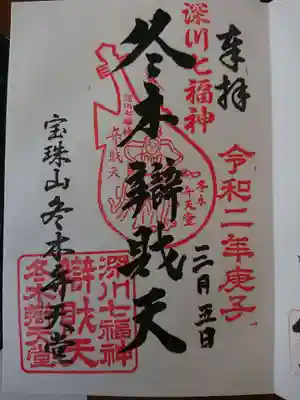 奉拝
深川七福神
令和二年庚子
二月五日
冬木辯財天
深川七福神
弁財天
冬木
弁天堂
宝珠山冬木弁天堂
深川七福神
辯財天
冬木弁天堂